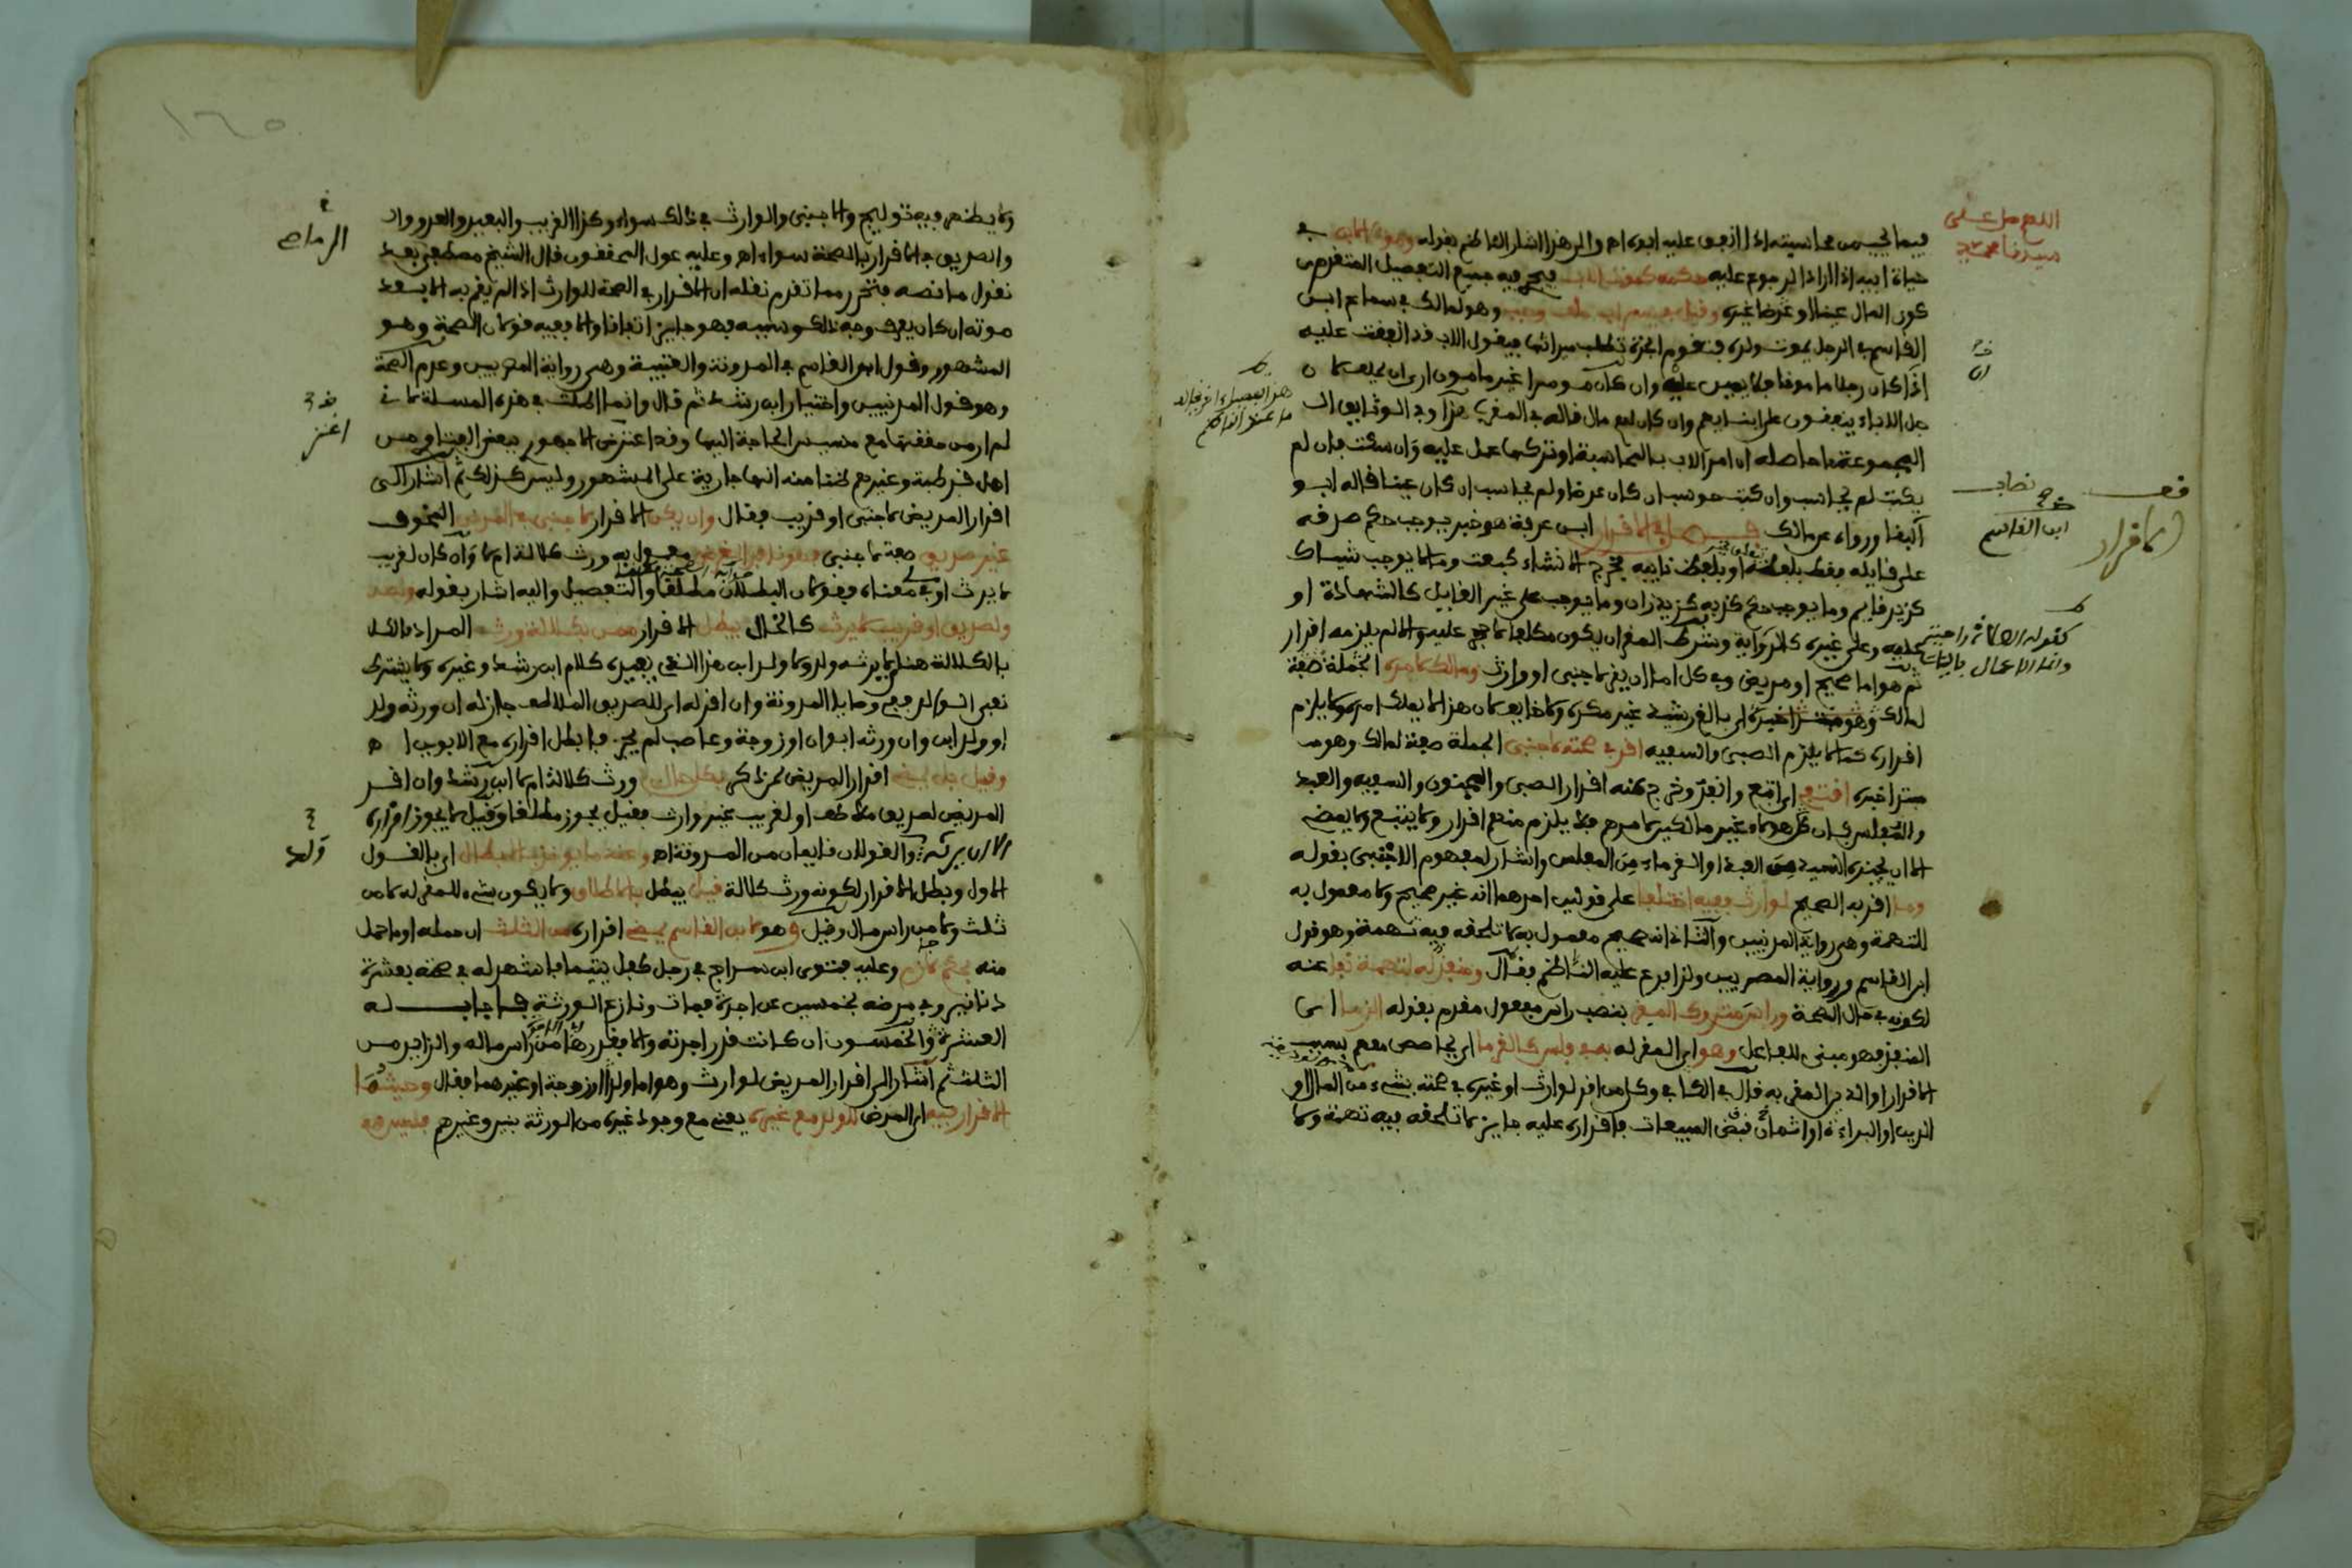 اللهم صل على
سيدنا محمد
فيما يجب من محاسبته اذا انفق عليه ابوه اه والى هذا اشار الناظم بقوله وموت الابن في
حياة ابيه اذا اراد الرجوع عليه حكمه كموت الاب فيجري فيه جميع التفصيل المتقدم من
كون المال عينا او عرضا غيره وقيل في يسر اب حلف وجب وهو لمالك في سماع ابن
القاسم في الرجل يموت ولده فتقوم الجدة تطلب ميراثها فيقول الاب قد انفقت عليه
اذا كان رجلا مامونا فلا يمين عليه وان كان معسرا غير مامون ارى ان يحلف لان
جل الاباء ينفقون على ابنائهم وان كان لهم مال قاله في المفيد وفي الوثائق
المجموعة ما حاصله ان امر الاب بالمحاسبة او تركها عمل عليه وان سكت فان لم
يكتب لم يحاسب وان كتب حوسب ان كان عرضا ولم يحاسب ان كان عينا قاله ابن
القاسم ورواه عن مالك فصل في الاقرار ابن عرفة هو خبر يوجب حكم صدقه
على قائله فقط بلفظه او بلفظ نائبه فيخرج الانشاء كبعت وما لا يوجب شيئا ك
كزيد قائم وما يوجب حكم كذبه كزيد زان وما يوجب على غير القائل كالشهادة او
عليه وعلى غيره كالرواية وشرط المقر ان يكون مكلفا لا حجر عليه والا لم يلزمه اقرار
ثم هو اما صحيح او مريض وفي كل اما ان يقر لاجنبي او وارث ومالك لامره الجملة صفة
لمالك وهو مبتدا خبره اي بالغ رشيد غير مكره ولا خائف لان هذا لا يملك امره ولا يلزم
اقراره كما لا يلزم الصبي والسفيه اقر في صحته لاجنبي الجملة صفة لمالك وهو
مبتدا خبره اقتفي اي اتبع وانفذ وخرج عنه اقرار الصبي والمجنون والسفيه والعبد
والمفلس ان كل هؤلاء غير مالكين لامرهم فلا يلزم منهم اقرار ولا يتبع ولا يمضي
الا ان يجيزه السيد من العبد او الغرماء من المفلس واشار لمفهوم الاجنبي بقوله
وما اقر به الصحيح لوارث ففيه اختلفا على قولين احدهما انه غير صحيح ولا معمول به
للتهمة وهي رواية المدنيين والثاني انه صحيح معمول به لا تلحقه فيه تهمة وهو قول
ابن القاسم ورواية المصريين ولذا فرع عليه الناظم فقال ومنفذ له لتهمة نفي عنه
لكونه في حال الصحة وراس متروك المقر بنصب راس مفعول مقدم بقوله الزما اي
المنفذ فهو مبني للفاعل وهو اي المقر له به في فلس كالغرما اي يحاصص معهم بسبب
الاقرار او الدين المقر به قال في الكافي وكل من اقر لوارث او غيره في صحته بشيء من المال او
الدين او البراءة او اثمان قبض المبيعات فاقراره عليه جائز لا تلحقه فيه تهمة ولا
ابن القاسم
الاقرار
وانما الاعمال بالنيات
١٦٥
ولا يظن فيه توليج والاجنبي والوارث في ذلك سواء وكذا القريب والبعيد والعدو
والصديق في الاقرار في الصحة سواء اه وعليه عول المحققون قال الشيخ مصطفى بعد
نقول ما نصه فتحرر مما تقدم نقله ان الاقرار في الصحة للوارث اذا لم يقم به الا بعد
موته ان كان يعرف وجه ذلك وسببه فهو جائز اتفاقا والا ففيه قولان الصحة وهو
المشهور وقول ابن القاسم في المدونة والعتبية وهي رواية المصريين وعدم الصحة
وهو قول المدنيين واختيار ابن رشد ثم قال وانما اطلت في هذه المسئلة لاني
لم ار من حققها مع مسيس الحاجة اليها وقد اعترض الاجهوري بعض الفتاوى من
اهل قرطبة وغيرهم ظنا منه انها جارية على المشهور وليس كذلك ثم اشار الى
اقرار المريض لاجنبي او قريب فقال وان يكن الاقرار لاجنبي في المرض المخوف
غير صديق صفة لاجنبي فهو نافذ الغرض معمول به ورث كلالة ام لا وان كان لقريب
لا يرث او في معناه فقولان البطلان مطلقا والتفصيل واليه اشار بقوله وبعد
ولصديق او قريب لا يرث كالخال يبطل الاقرار ممن بكلالة ورث المراد
بالكلالة هنا لا يرثه ولد ولا ولد ابن هذا الذي يفيده كلام ابن رشد وغيره ولا يشترط
نفي الوالد ففي وصايا المدونة وان اقر له اي للصديق الملاطف جاز له ان ورثه ولد
او ولد ابن وان ورثه ابوان او زوجة وعاصب لم يجز فابطل اقراره مع الابوين اه
وقيل بل يمضي اقرار المريض لمن ذكر بكل حال ورث كلالة ام لا ابن رشد وان اقر
المريض لصديق ملاطف او لقريب غير وارث فقيل يجوز مطلقا وقيل لا يجوز اقراره
الا ان يرثه ولد والقولان قائمان من المدونة اه وعندما يؤخذ بالابطال اي بالقول
الاول ويبطل الاقرار لكونه ورث كلالة قيل يبطل بالاطلاق ولا يكون شيء للمقر له لا من
ثلث ولا من راس مال وقيل وهو لابن القاسم يمضي اقراره من الثلث ان حمله او ما حمل
منه بحكم لازم وعليه فتوى ابن سراج في رجل كفل يتيما فاشهد له في صحته بعشرة
دنانير وفي مرضه بخمسين عن اجرة فمات ونازع الورثة فاجاب له
العشرة والخمسون ان كانت قدر اجرته والا فقدرها من راس ماله والزائد من
الثلث ثم اشار الى اقرار المريض لوارث وهو اما ولد او زوجة او غيرهما فقال وحيثما
الاقرار فيه اي المرض للولد مع غيره يعني مع وجود غيره من الورثة بنين وغيرهم فليس
الرماص
ولد